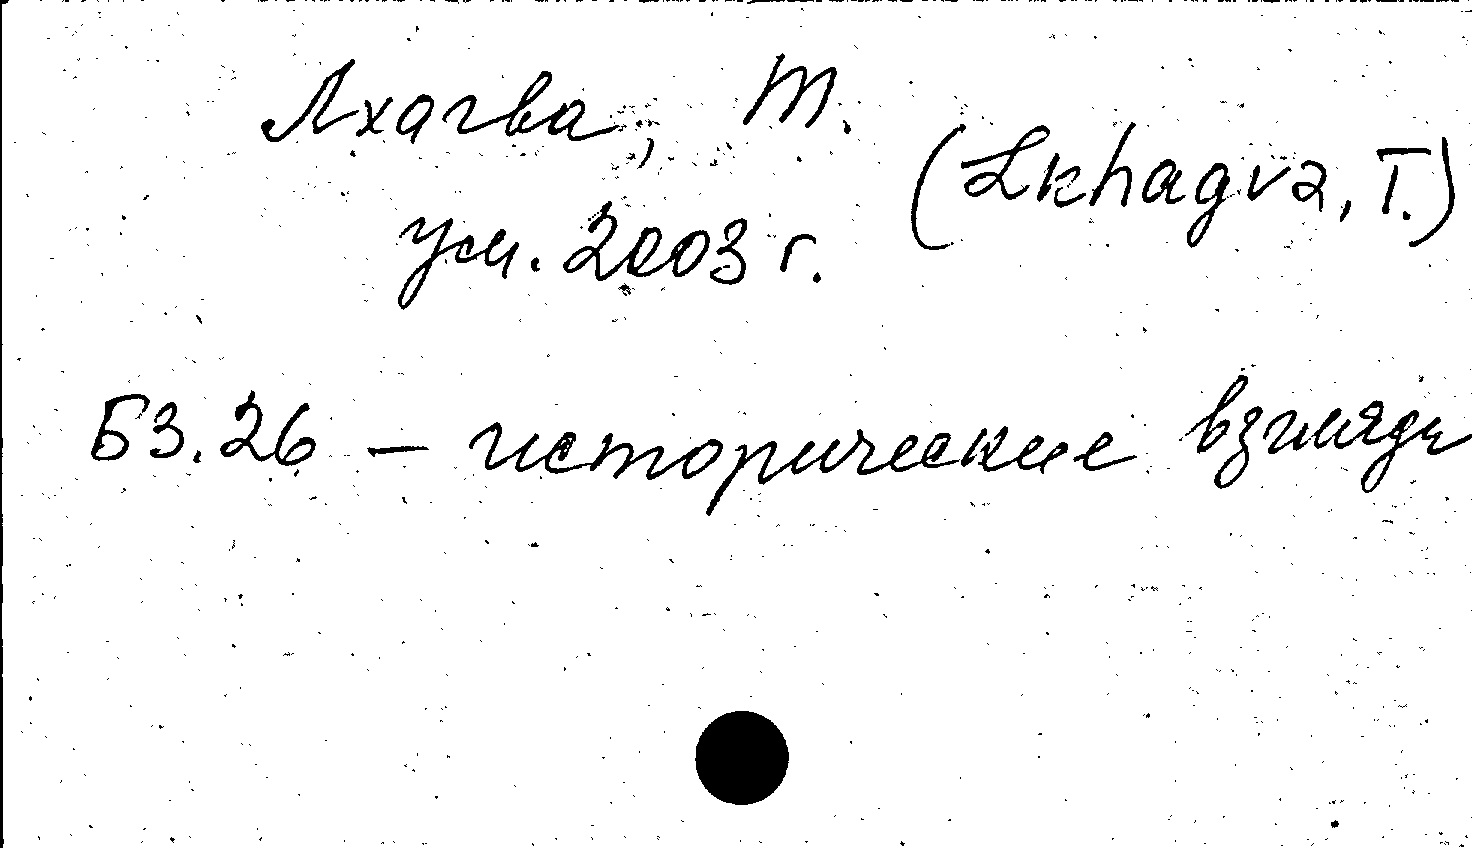 Лхагва, Т.
(Lkhagva, T.)
ум. 2003 г.
Б3.26 – исторические взгляды